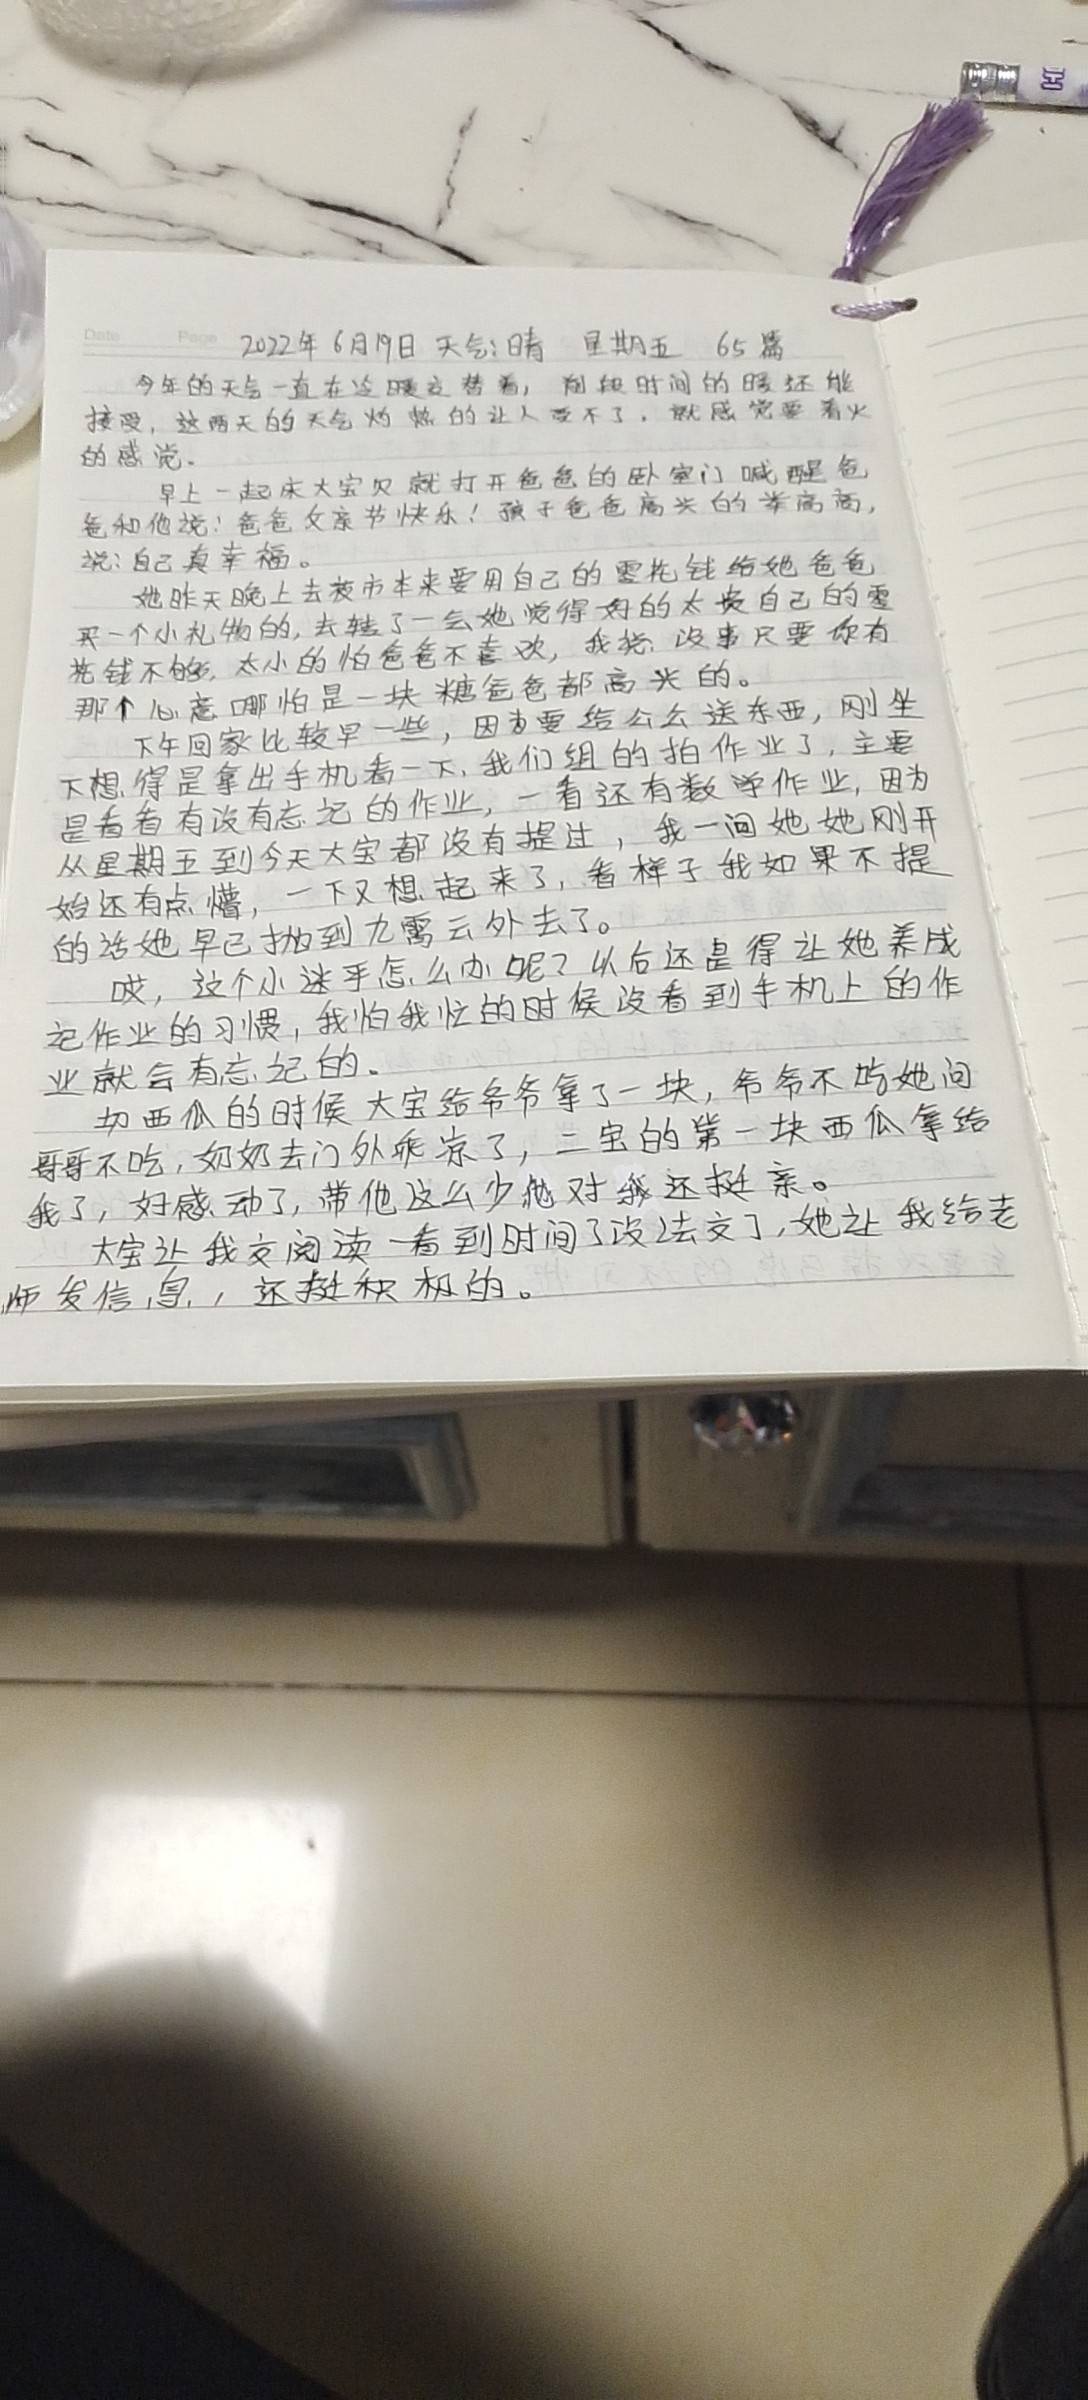 Date Page 2022年6月19日 天气:晴 星期五 65篇
今年的天气一直在冷暖交替着，前段时间的暖还能
接受，这两天的天气灼热的让人受不了，就感觉要着火
的感觉。
早上一起床大宝贝就打开爸爸的卧室门喊醒爸
爸和他说：爸爸父亲节快乐！孩子爸爸高兴的举高高，
说：自己真幸福。
她昨天晚上去夜市本来要用自己的零花钱给她爸爸
买一个小礼物的，去转了一会她觉得好的太贵自己的零
花钱不够，太小的怕爸爸不喜欢，我说：没事只要你有
那个心意哪怕是一块糖爸爸都高兴的。
下午回家比较早一些，因为要给公公送东西，刚坐
下想得是拿出手机看一下，我们组的拍作业了，主要
是看看有没有忘记的作业，一看还有数学作业，因为
从星期五到今天大宝都没有提过，我一问她她刚开
始还有点懵，一下又想起来了，看样子我如果不提
的话她早已抛到九霄云外去了。
哎，这个小迷乎怎么办呢？以后还是得让她养成
记作业的习惯，我怕我忙的时候没看到手机上的作
业就会有忘记的。
切西瓜的时候大宝给爷爷拿了一块，爷爷不吃她问
哥哥不吃，奶奶去门外乘凉了，二宝的第一块西瓜拿给
我了，好感动了，带他这么少他对我还挺亲。
大宝让我交阅读一看到时间了没法交了，她让我给老
师发信息，还挺积极的。
H